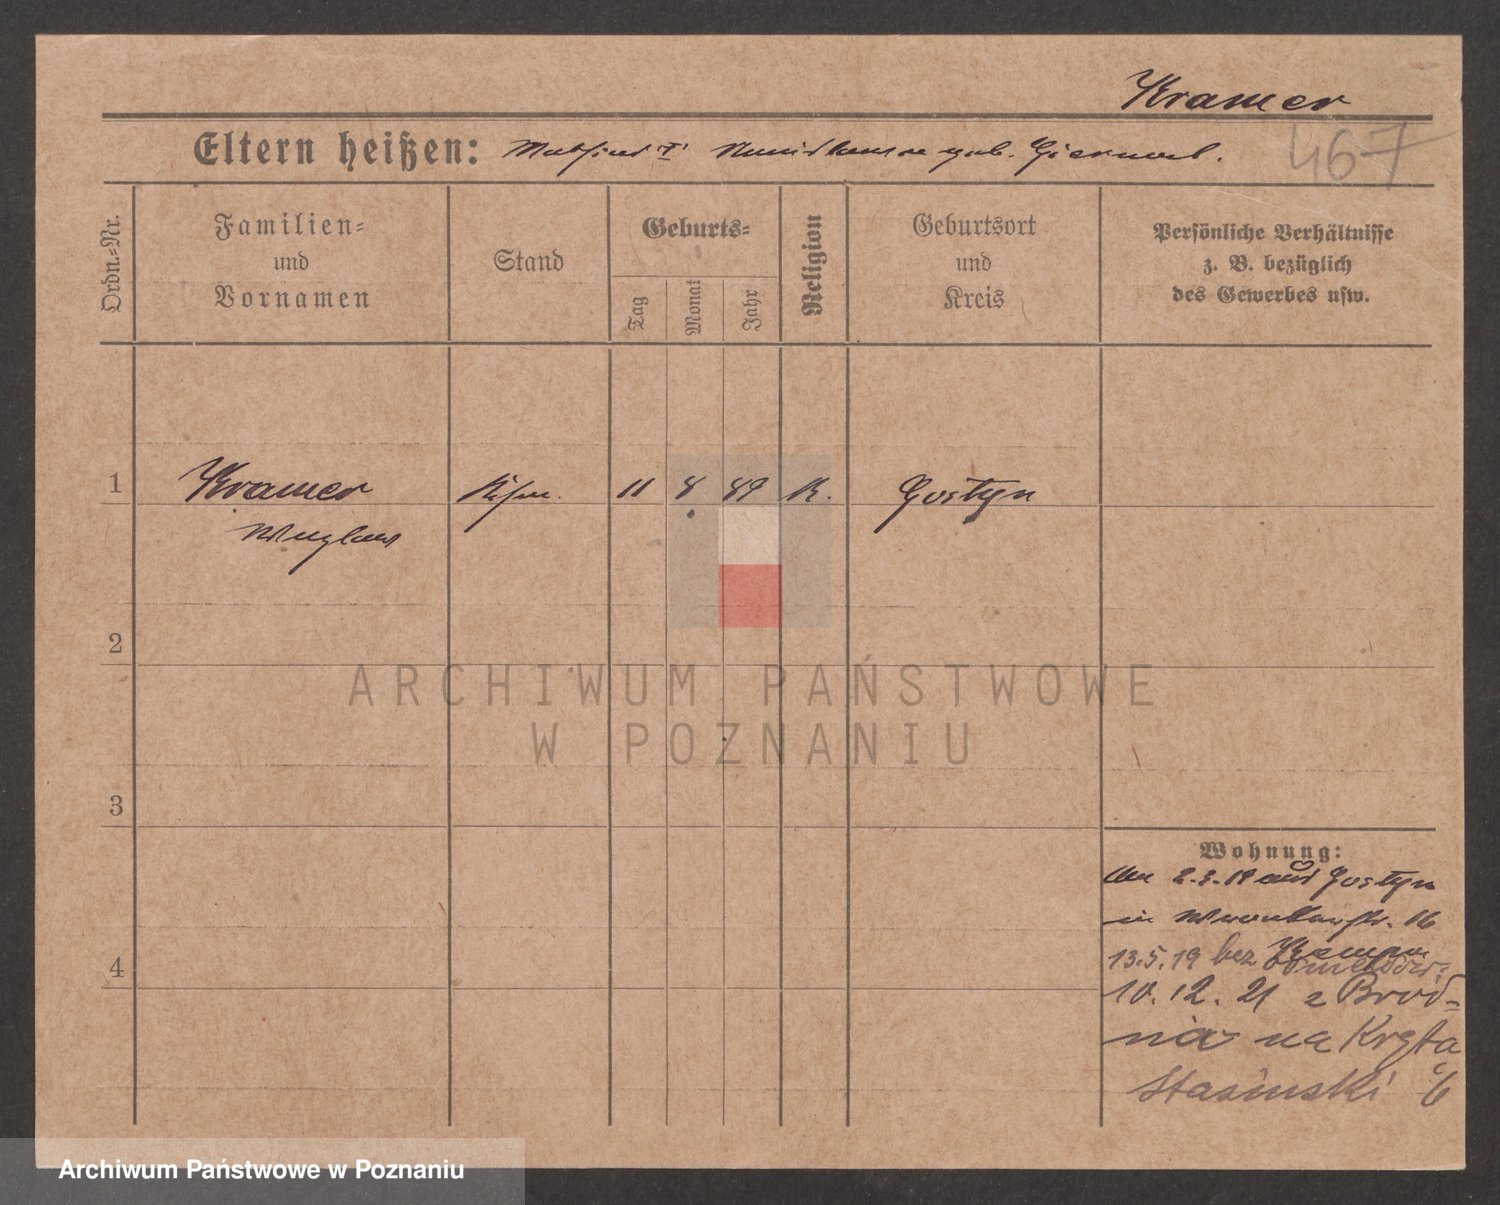 Kramer
467
Eltern heißen:
geb.
Ordn.=Nr.
Familien=
und
Vornamen
Stand
Geburts=
Tag
Monat
Jahr
Religion
Geburtsort
und
Kreis
Persönliche Verhältnisse
z. B. bezüglich
des Gewerbes usw.
1 Kramer Kfm. 11 8 89 K. Gostyn
2
3
4
Wohnung:
2.3.19 aus Gostyn
in 16
13.5.19 bez
10.12.21 z Brod=
nia na Kręta
6
ARCHIWUM PAŃSTWOWE
W POZNANIU
Archiwum Państwowe w Poznaniu